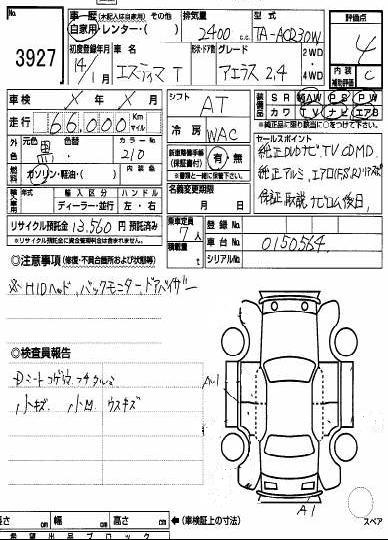 No.
3927
車歴 (未記入は自家用) その他
自家用・レンター( )
排気量
2400 cc
型式
TA-ACR30W
評価点
4
初度登録年月
14/1
車名
エスティマT
形状・ドア数 グレード
アエラス 2.4
2WD
4WD
内装
補助評価
C
車検 X年 X月
シフト
AT
装備品
SR AW PS PW
カワ TV ナビ エアB
走行 66,000 Km
マイル
冷房
WAC
※純正品に限り該当に○をつけて下さい。
外色
元色 黒
色替
カラーNo.
210
新車時保証書
有・無
セールスポイント
純正DVDナビTV CD MD
純正アルミ、エアロ
保証取説ナビロム後日
燃料 ガソリン・軽油・( )
内装色
輸入車用
輸入区分
ディーラー・並行
ハンドル
左・右
名義変更期限
月 日
リサイクル預託金 13,560円 預託済み
※リサイクル預託金に資金管理料金は含まれません。
乗車定員
7人
積載量
t
登録No.
車台No.
0150564
シリアルNo.
◎注意事項 (修復・不具合箇所および状態等)
※HIDヘッド、バックモニター、ドアバイザー
◎検査員報告
Dシートコゲ穴
小キズ 小凹 ウスキズ
A1
A1
スペア
長さ cm 幅 cm 高さ cm ←(車検証上の寸法)
希望出品ブロック